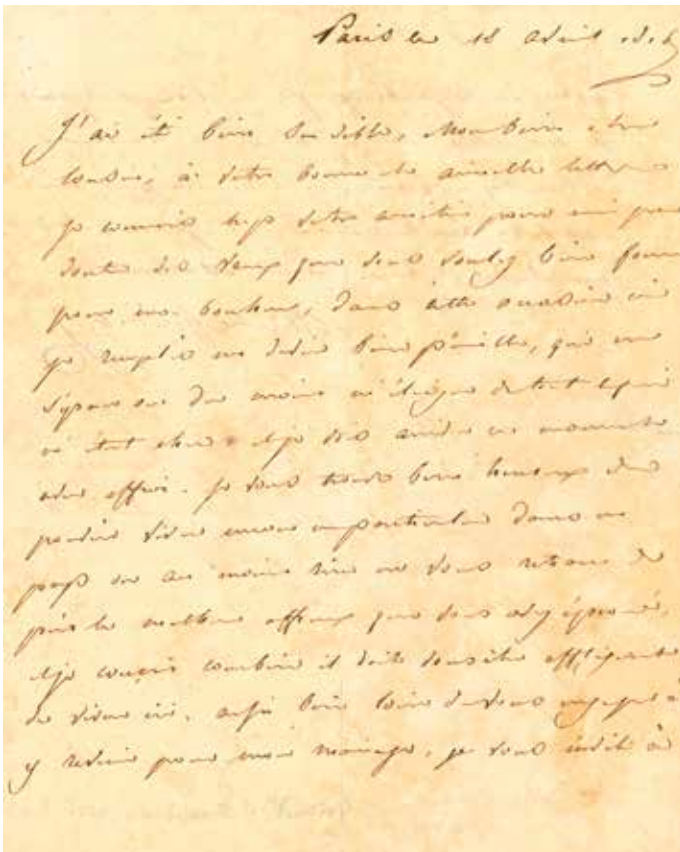 Paris le 18 avril
J'ai été bien sensible, mon bien cher
cousin, à votre bonne et amicalle lettre
je connois trop votre amitié pour moi pour
douter des vœux que vous voulez bien former
pour mon bonheur, dans cette occasion ci
je remplis un devoir bien pénible, qui me
sépare ou du moins m'éloigne de tout ce qui
m'étoit cher et je dois
. je vous trouve bien heureux de
pouvoir vivre encore en particulier dans un
pays ou au moins rien ne vous retrace de
plus le malheur affreux que vous avez éprouvé,
et je conçois combien il doit vous être affligeant
de vivre ici. aussi bien loin de vous engager à
y revenir pour mon mariage, je vous